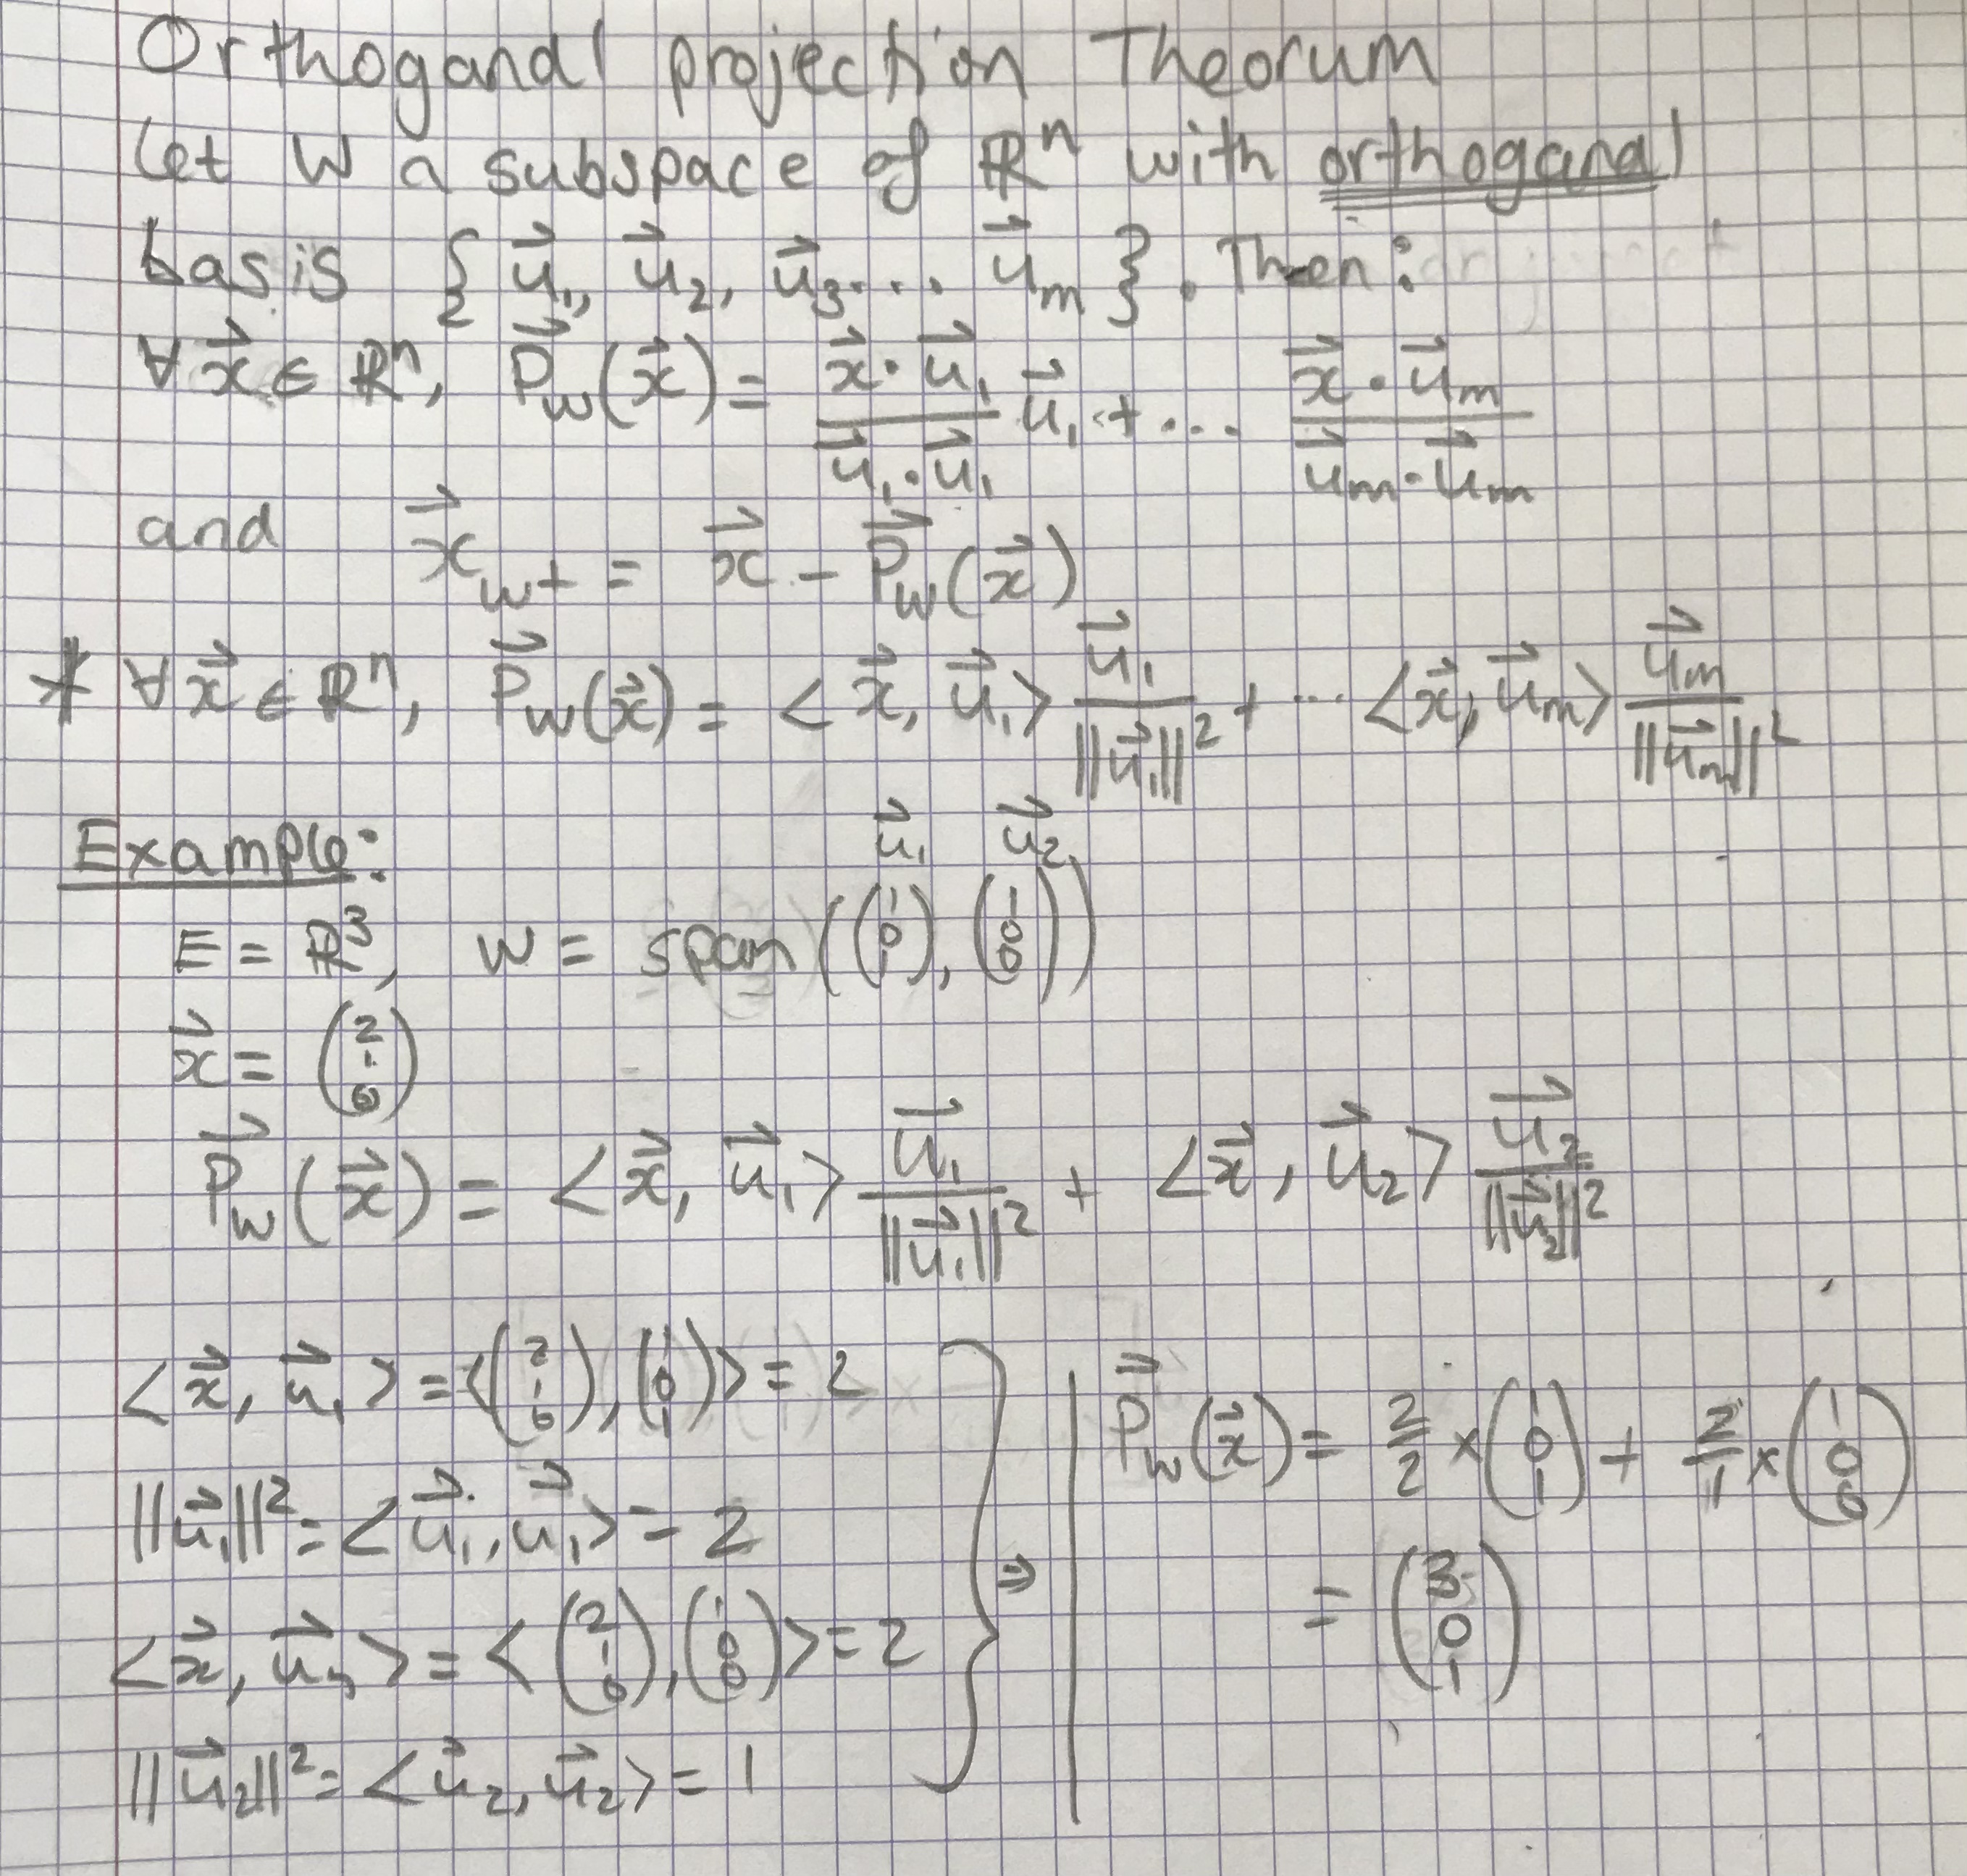 Orthoganal projection Theorum
Let W a subspace of ℝⁿ with orthoganal
basis {u⃗₁, u⃗₂, u⃗₃... u⃗ₘ}. Then:
∀ x⃗ ∈ ℝⁿ, P⃗_W(x⃗) = (x⃗·u⃗₁)/(u⃗₁·u⃗₁) u⃗₁ + ... (x⃗·u⃗ₘ)/(u⃗ₘ·u⃗ₘ)
and x⃗_W⊥ = x⃗ - P⃗_W(x⃗)
* ∀ x⃗ ∈ ℝⁿ, P⃗_W(x⃗) = <x⃗, u⃗₁> u⃗₁/||u⃗₁||² + ... <x⃗, u⃗ₘ> u⃗ₘ/||u⃗ₘ||²
Example:
u⃗₁ u⃗₂
E = ℝ³, W = span((1 0 1), (1 0 0))
x⃗ = (2 1 0)
P⃗_W(x⃗) = <x⃗, u⃗₁> u⃗₁/||u⃗₁||² + <x⃗, u⃗₂> u⃗₂/||u⃗₂||²
<x⃗, u⃗₁> = <(2 1 0), (1 0 1)> = 2
||u⃗₁||² = <u⃗₁, u⃗₁> = 2
<x⃗, u⃗₂> = <(2 1 0), (1 0 0)> = 2
||u⃗₂||² = <u⃗₂, u⃗₂> = 1
⇒
P⃗_W(x⃗) = 2/2 × (1 0 1) + 2/1 × (1 0 0)
= (3 0 1)